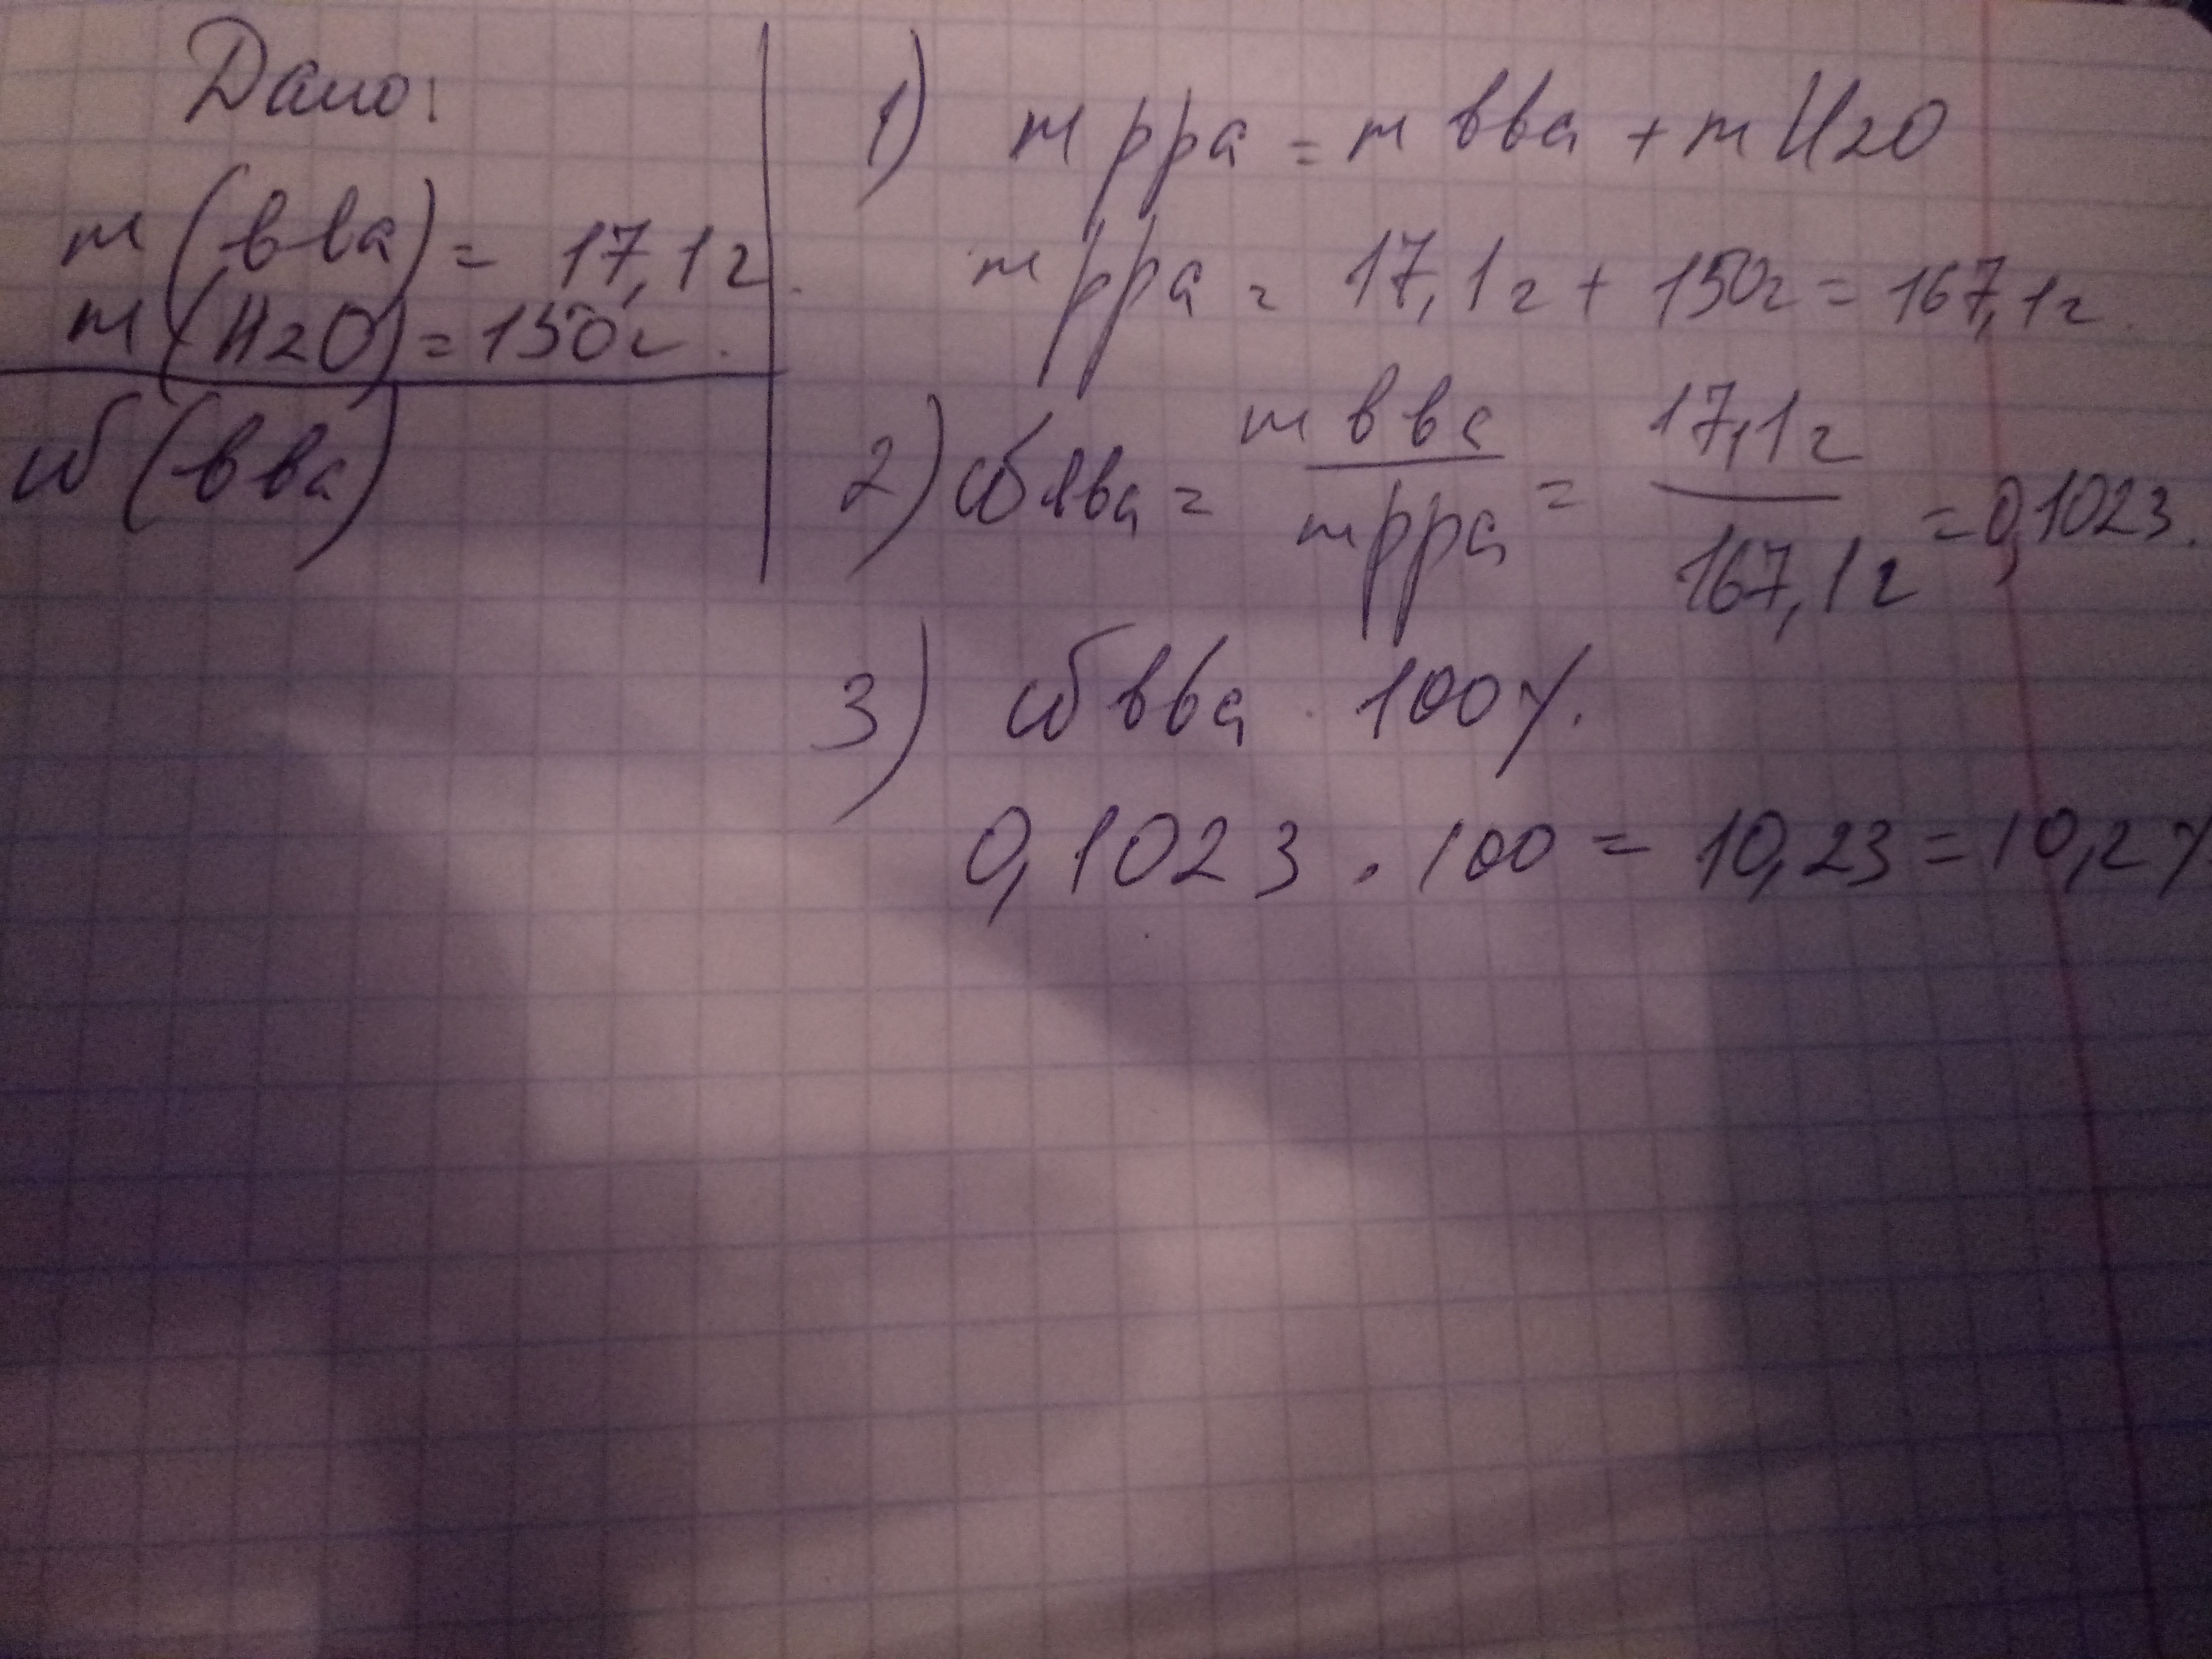 Дано:
m(вва) = 17,1г.
m(H2O) = 150г.
ω(вва)
1) m рра = m вва + m H2O
m рра = 17,1г + 150г = 167,1г.
2) ω вва = m вва / m рра = 17,1г / 167,1г = 0,1023.
3) ω вва · 100%.
0,1023 · 100 = 10,23 = 10,2%